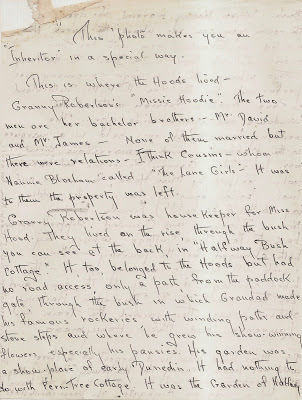 This photo makes you an
"Inheritor" in a special way.
This is where the Hoods lived -
Granny Robertson's "Missie Hoodie". The two
men are her bachelor brothers - Mr. David
and Mr. James - None of them married but
there were relations - I think Cousins - whom
Nannie called "The Lane Girls". It was
to them the property was left.
Granny Robertson was housekeeper for Miss
Hood. They lived on the rise through the bush
you can see at the back in "Halfway Bush
Cottage". It too, belonged to the Hoods but had
no road access, only a path, from the paddock
gate through the bush in which Grandad made
his famous rockeries with winding paths and
stone steps and where he grew his show-winning
flowers, especially his pansies. His garden was
a show place of early Dunedin. It had nothing to
do with Fern Tree Cottage. It was the Garden of